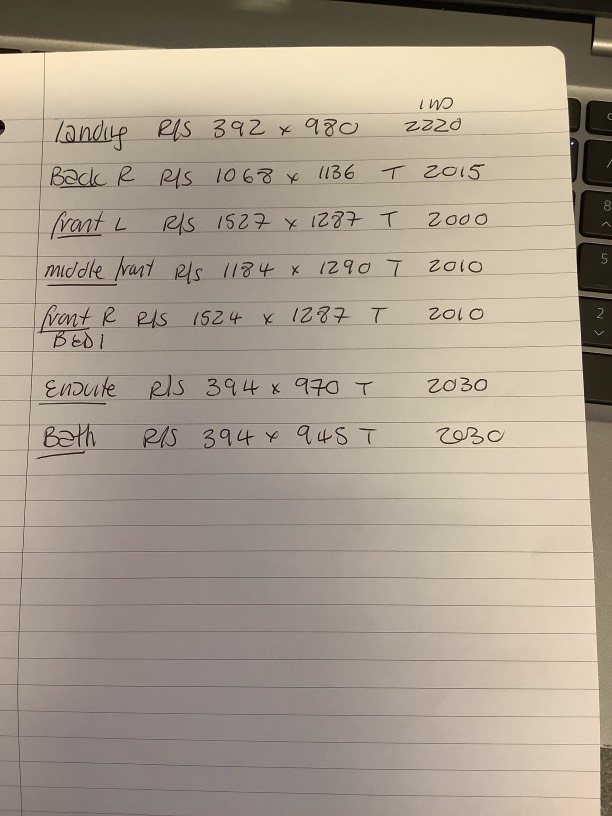 IWO
Landing R/S 392 x 980 2220
Back R R/S 1068 x 1136 T 2015
front L R/S 1527 x 1287 T 2000
middle front R/S 1184 x 1290 T 2010
front R R/S 1524 x 1287 T 2010
BED 1
Ensuite R/S 394 x 970 T 2030
Bath R/S 394 x 945 T 2030